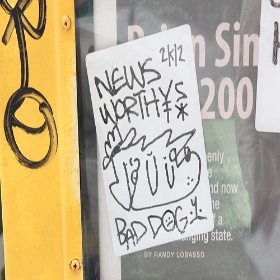 2k12
NEWS
WORTHY
BAD DOG
Sim
200
enly
e
nd now
the
anging state.
BY RANDY LOBASSO